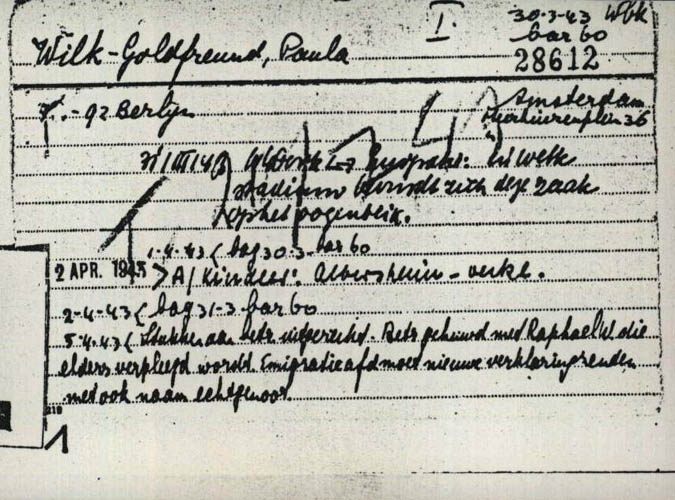 I. 30-3-43 Wbk
bar 60
Wilk-Goldfreund, Paula 28612
-92 Berlijn Amsterdam
36
31/III/43 in welk
stadium bevindt zich deze zaak
op het oogenblik.
1-4-43 ( bag 30-3 bar 60
2 APR. 1943 > A/ Kinder: Albersheim - verkl.
2-4-43 ( bag 31-3 bar 60
5-4-43 ( Stukken aan betr uitgereikt. Betr gehuwd met Raphael W die
elders verpleegd wordt. Emigratie afd moet nieuwe verklaring zenden
met ook naam echtgenoot.
1